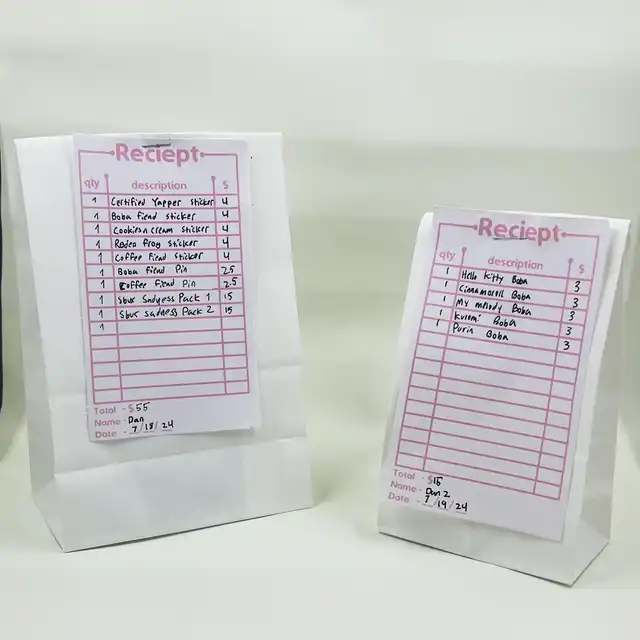 Reciept
qty description $
1 Certified Yapper sticker 4
1 Boba fiend sticker 4
1 Cookies n cream sticker 4
1 Rodeo frog sticker 4
1 Coffee fiend sticker 4
1 Boba fiend Pin 2.5
1 Coffee fiend Pin 2.5
1 Sbux Sadness Pack 1 15
1 Sbux sadness Pack 2 15
1
Total - $55
Name - Dan
Date - 7/18/24
Reciept
qty description $
1 Hello Kitty Boba 3
1 Cinnamoroll Boba 3
1 My melody Boba 3
1 Kuromi Boba 3
1 Purin Boba 3
Total - $15
Name - Dan 2
Date - 7/19/24